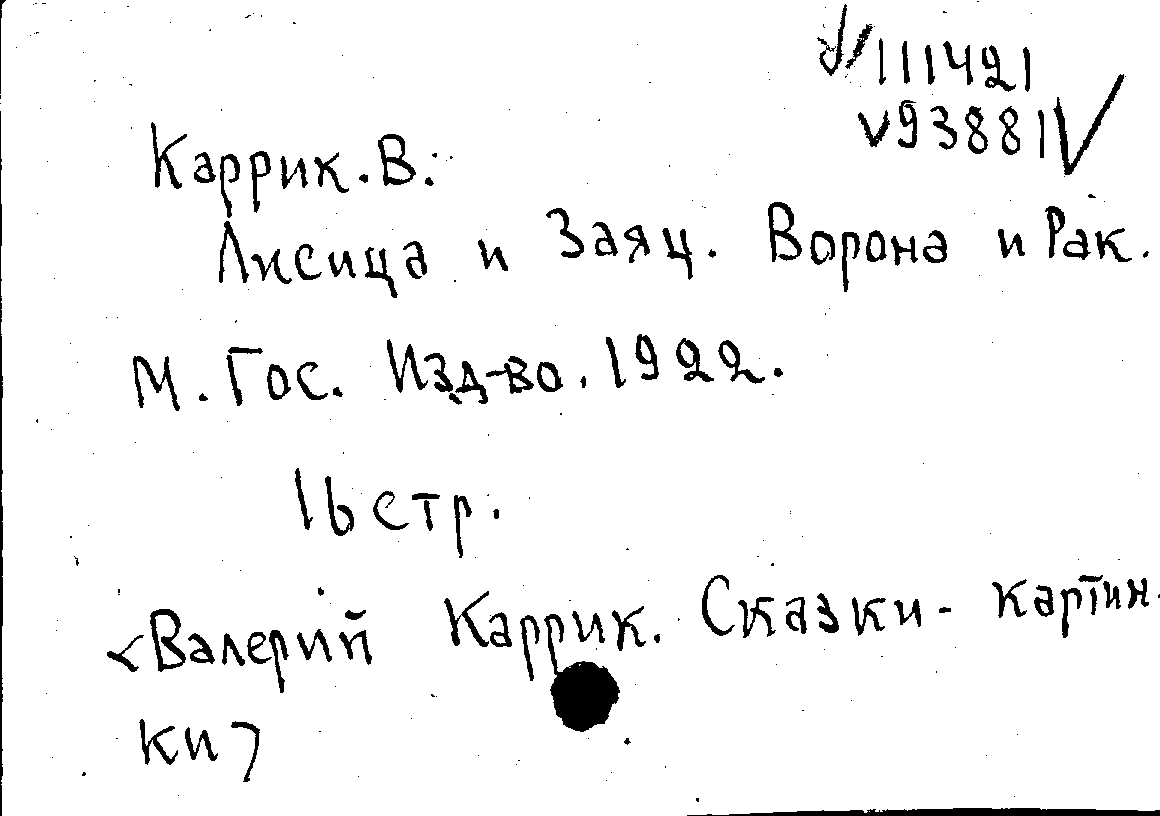 V/111421
V93881V
Каррик. В.
Лисица и Заяц. Ворона и Рак.
М. Гос. Изд-во. 1922.
16 стр.
<Валерий Каррик. Сказки - картин-
ки>